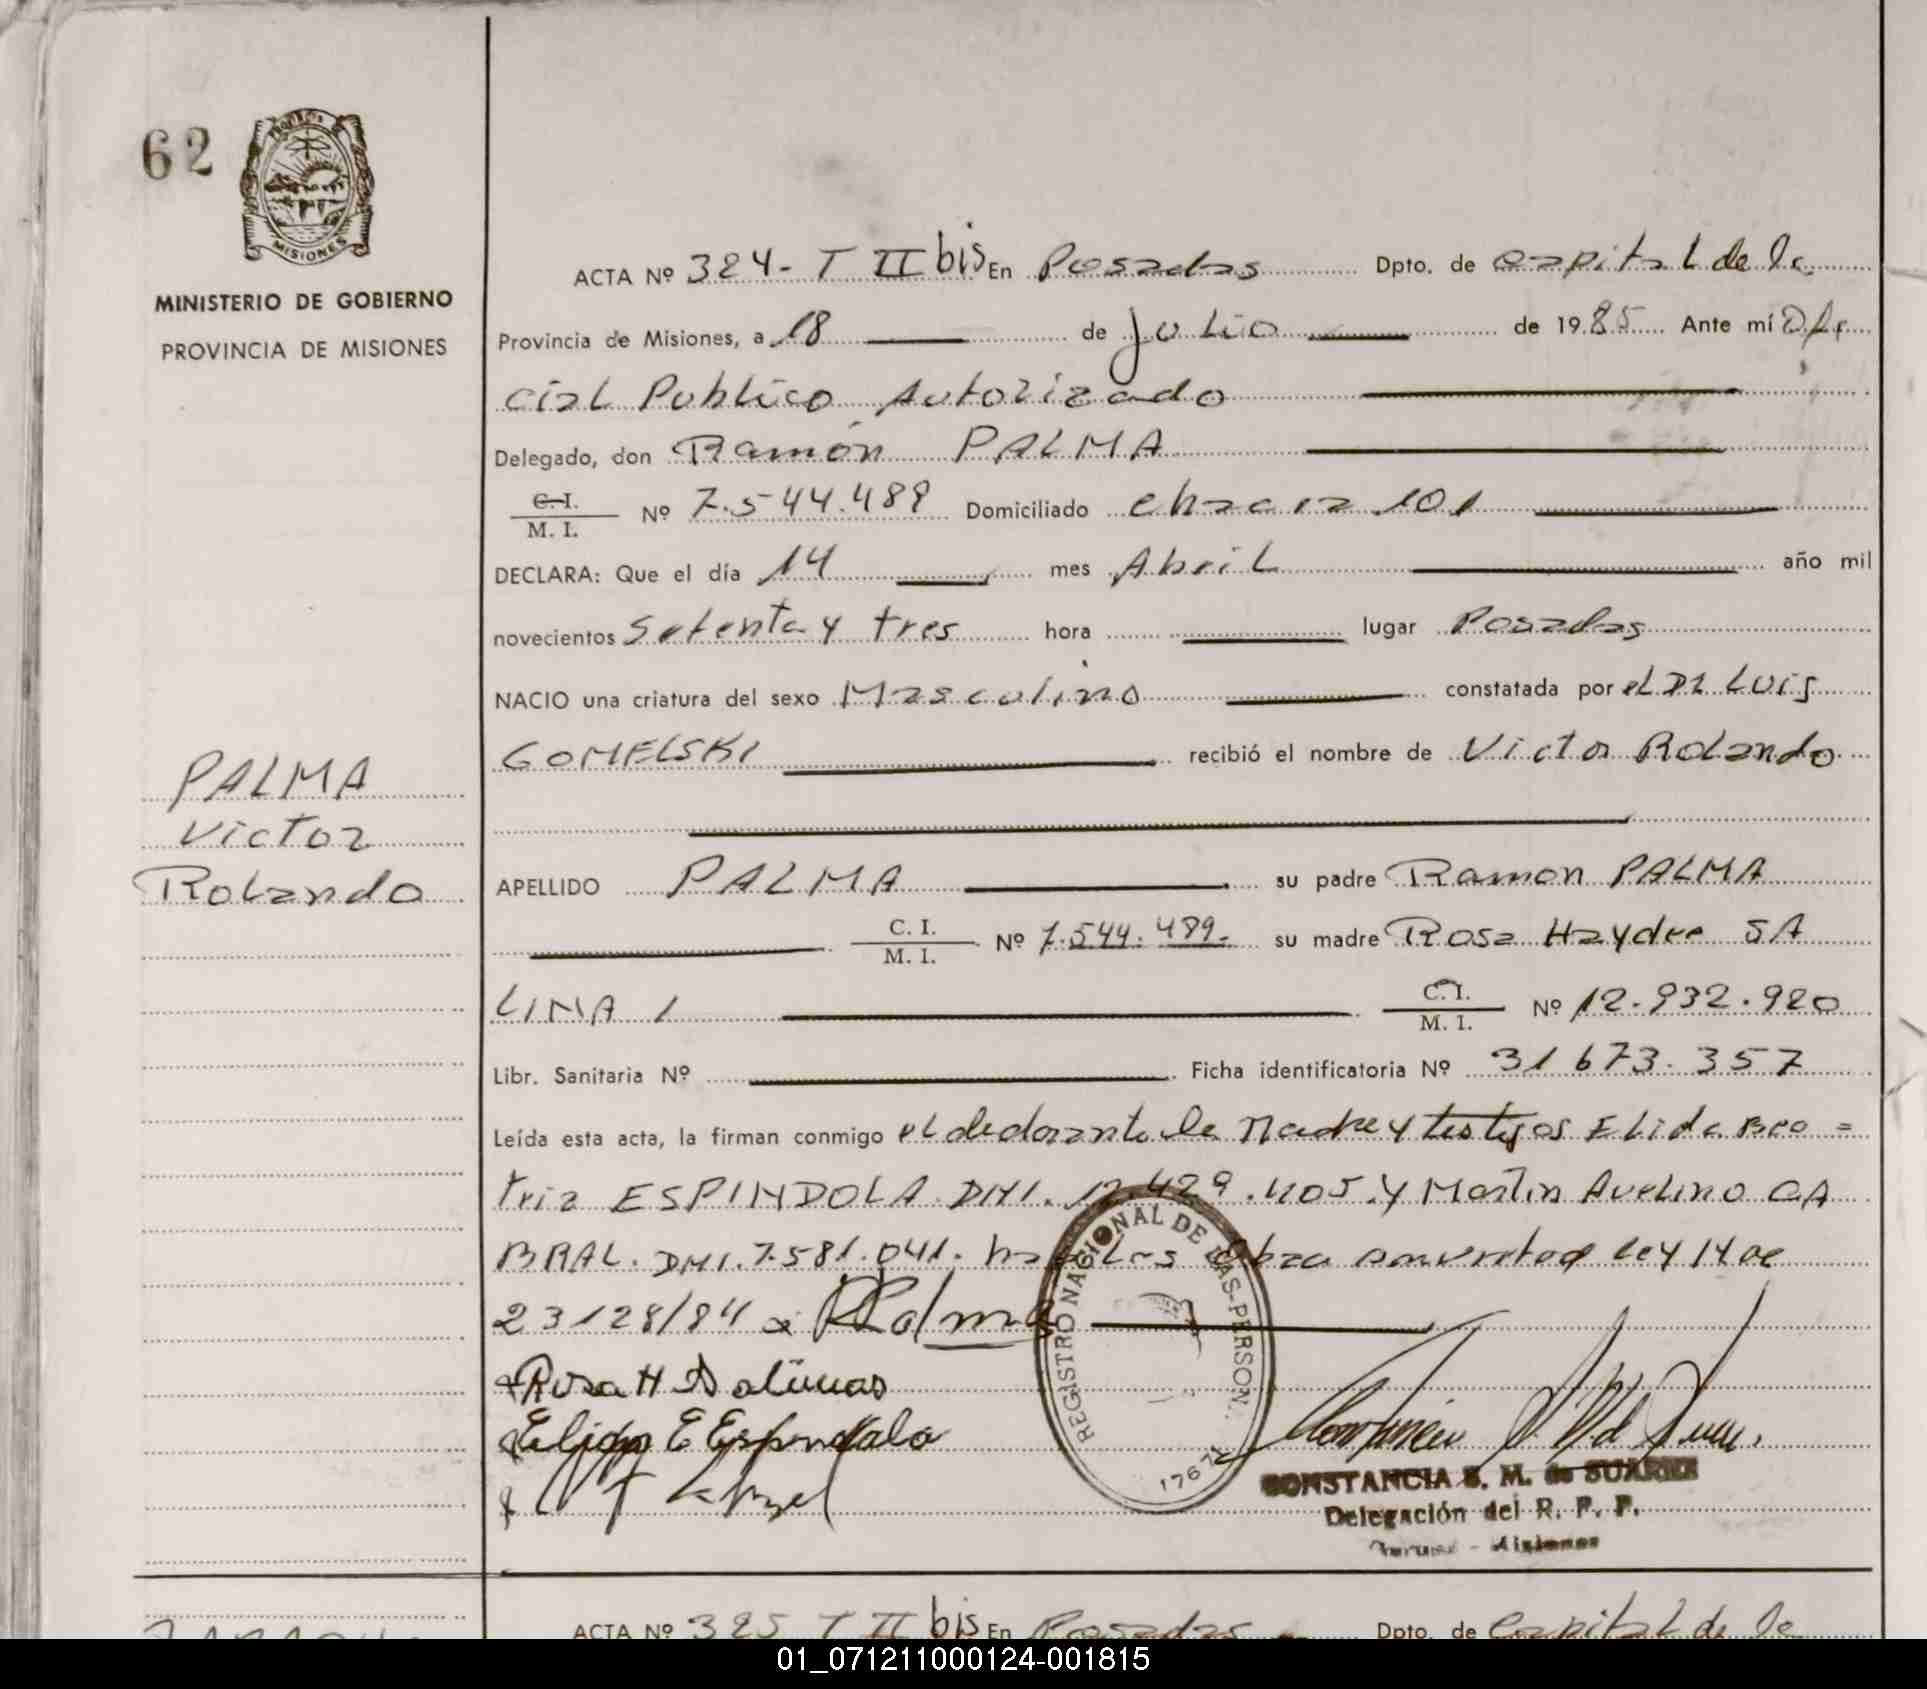 62
MISIONES
MINISTERIO DE GOBIERNO
PROVINCIA DE MISIONES
PALMA
Victor
Rolando
ACTA Nº 324- T II bis En Posadas Dpto. de capital de la
Provincia de Misiones, a 18 de julio de 1985 Ante mí Ofi
cial Publico Autorizado
Delegado, don Ramón PALMA
C. I. / M. I. Nº 7.544.489 Domiciliado chacra 101
DECLARA: Que el día 14 mes Abril año mil
novecientos Setenta y tres hora lugar Posadas
NACIO una criatura del sexo Masculino constatada por el Dr Luis
GOMELSKI recibió el nombre de Victor Rolando
APELLIDO PALMA su padre Ramon PALMA
C. I. / M. I. Nº 7.544.489. su madre Rosa Haydee SA
LINA 1 C. I. / M. I. Nº 12.932.920
Libr. Sanitaria Nº Ficha identificatoria Nº 31 673.357
Leída esta acta, la firman conmigo el declarante la Madre y testigos Elida Bea =
triz ESPINDOLA DNI. 12.429.405 y Martin Avelino CA
BRAL. DNI.7.581.041. ley 14 de
23128/84 RPalma
Rosa H Salinas
E Espindola
REGISTRO NACIONAL DE LAS PERSON.
1767
CONSTANCIA S. M. de SUAREZ
Delegación del R. P. P.
Misiones
ACTA Nº 325 T II bis En Posadas Dpto. de Capital de la
01_071211000124-001815